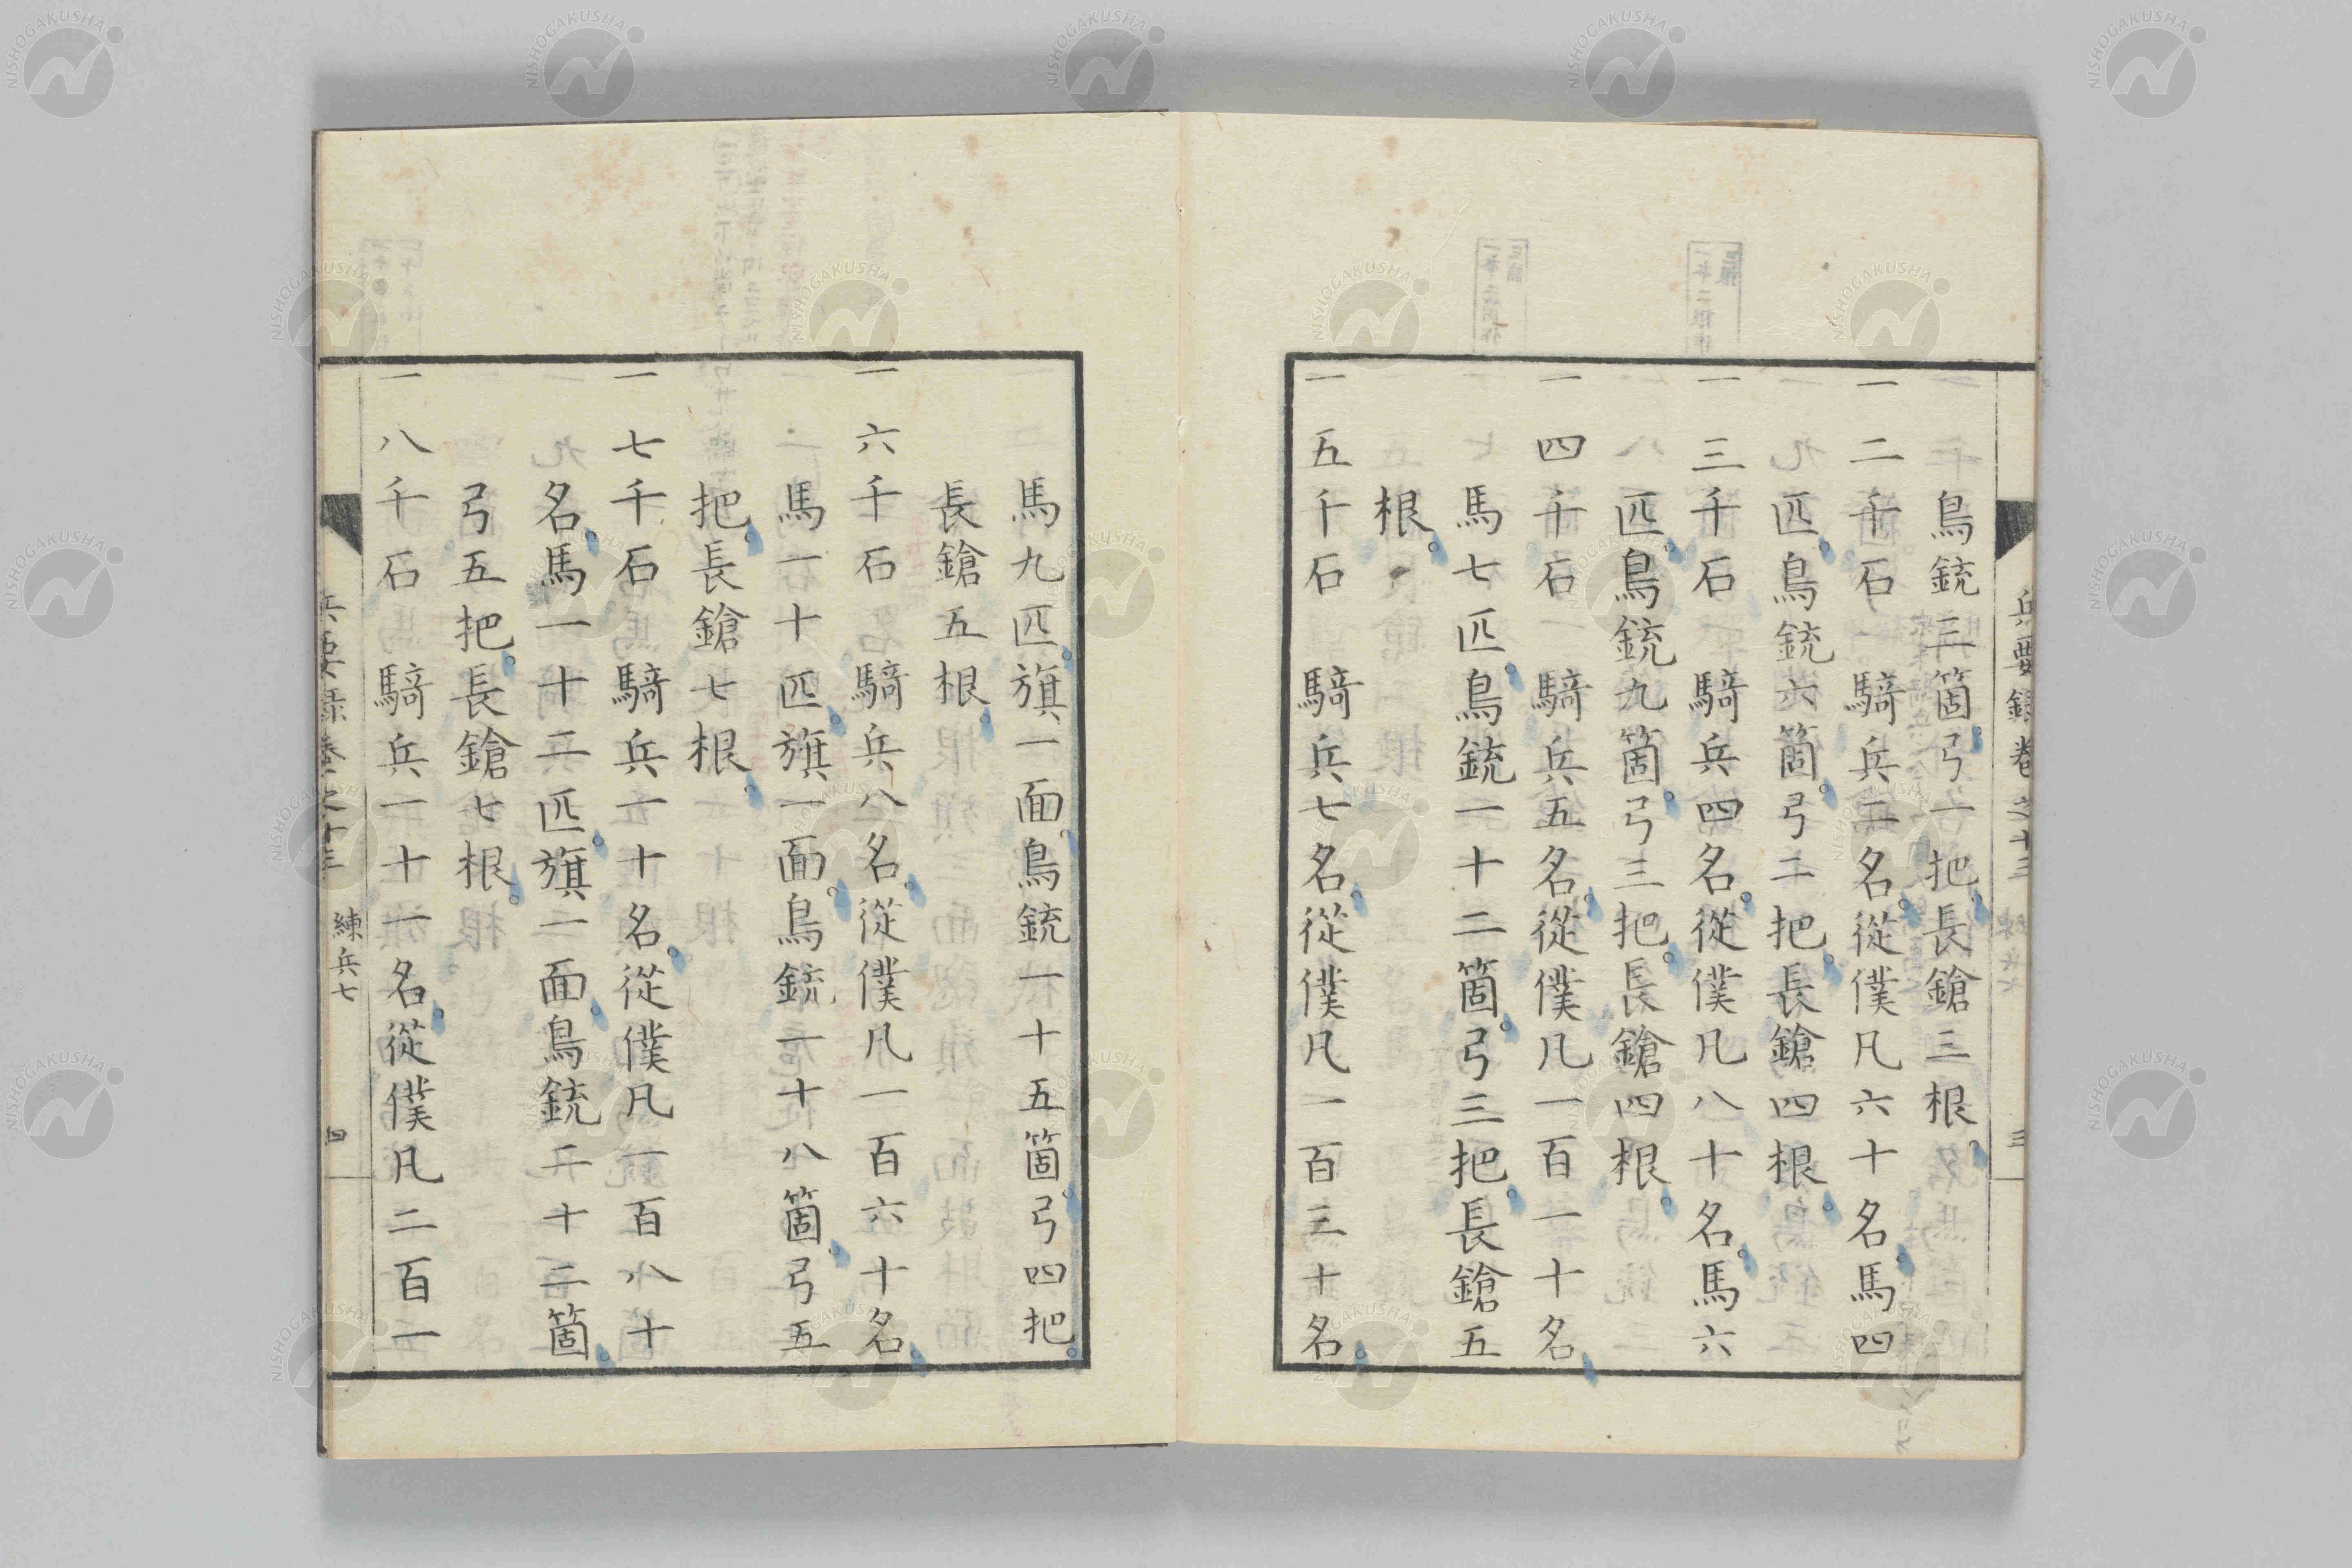 兵要録卷之十三
三
鳥銃三箇。弓一把。長鎗三根。
一二千石 騎兵二名。從僕凡六十名。馬四
匹。鳥銃六箇。弓二把。長鎗四根。
一三千石 騎兵四名。從僕凡八十名。馬六
匹。鳥銃九箇。弓三把。長鎗四根。
一四千石 騎兵五名。從僕凡一百一十名。
馬七匹。鳥銃一十二箇。弓三把。長鎗五
根。
一五千石 騎兵七名。從僕凡一百三十名。
馬九匹。旗一面。鳥銃一十五箇。弓四把。
長鎗五根。
一六千石 騎兵八名。從僕凡一百六十名。
馬一十匹。旗一面。鳥銃一十八箇。弓五
把。長鎗七根。
一七千石 騎兵一十名。從僕凡一百八十
名。馬一十二匹。旗二面。鳥銃二十二箇。
弓五把。長鎗七根。
一八千石 騎兵一十一名。從僕凡二百一
兵要録卷之十三 練兵七 四
NISHOGAKUSHA